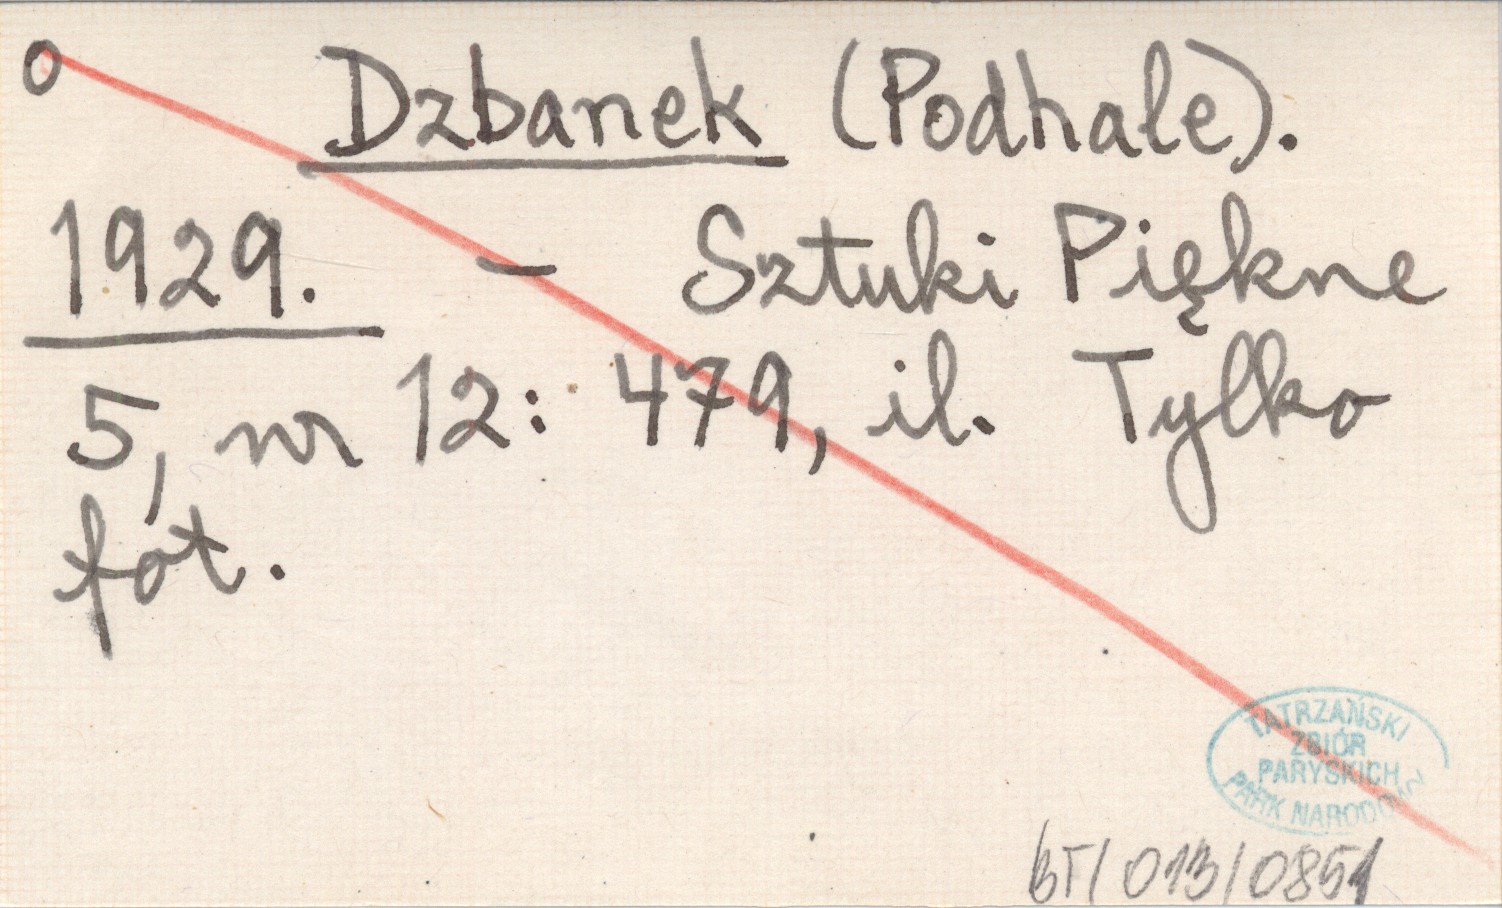 o Dzbanek (Podhale).
1929. – Sztuki Piękne
5, nr 12: 479, il. Tylko
fot.
TATRZAŃSKI
ZBIÓR
PARYSKICH
PARK NARODOWY
BT/013/0851